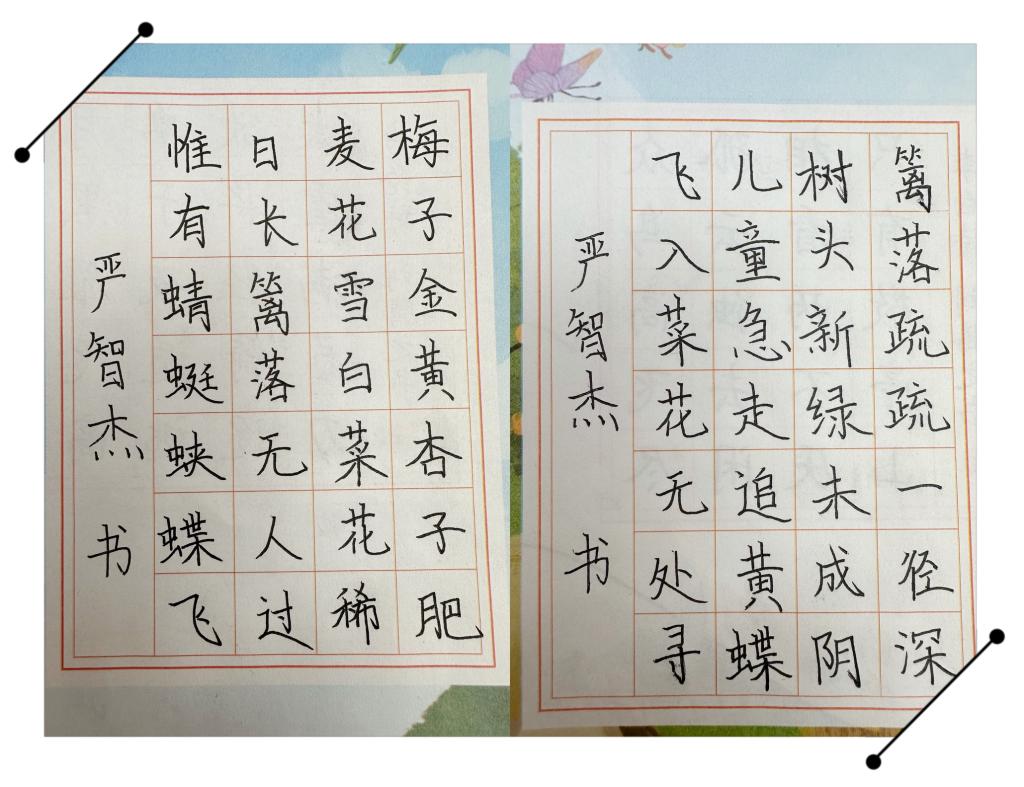 梅子金黄杏子肥
麦花雪白菜花稀
日长篱落无人过
惟有蜻蜓蛱蝶飞
严智杰 书
篱落疏疏一径深
树头新绿未成阴
儿童急走追黄蝶
飞入菜花无处寻
严智杰 书